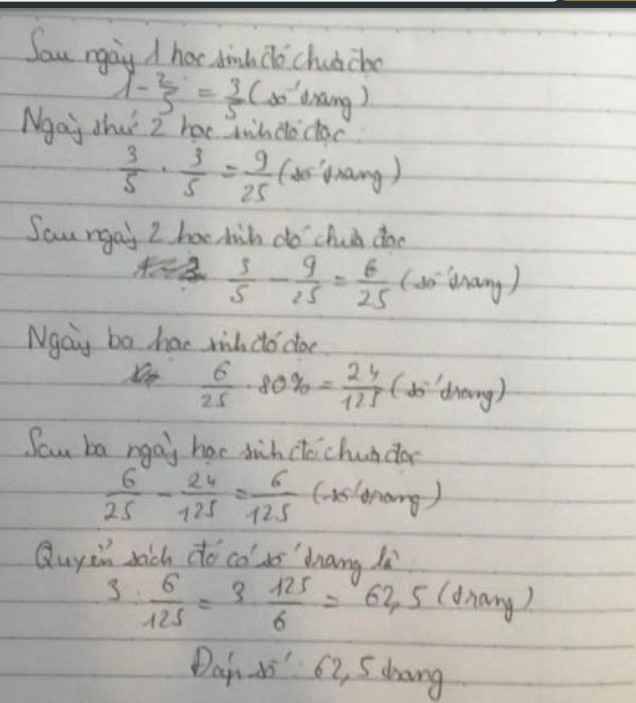 Sau ngày 1 học sinh đó chưa đọc
1 - 2/5 = 3/5 (số trang)
Ngày thứ 2 học sinh đó đọc
3/5 . 3/5 = 9/25 (số trang)
Sau ngày 2 học sinh đó chưa đọc
3/5 - 9/25 = 6/25 (số trang)
Ngày ba học sinh đó đọc
6/25 . 80% = 24/125 (số trang)
Sau ba ngày học sinh đó chưa đọc
6/25 - 24/125 = 6/125 (số trang)
Quyển sách đó có số trang là
3 : 6/125 = 3 . 125/6 = 62,5 (trang)
Đáp số : 62,5 trang